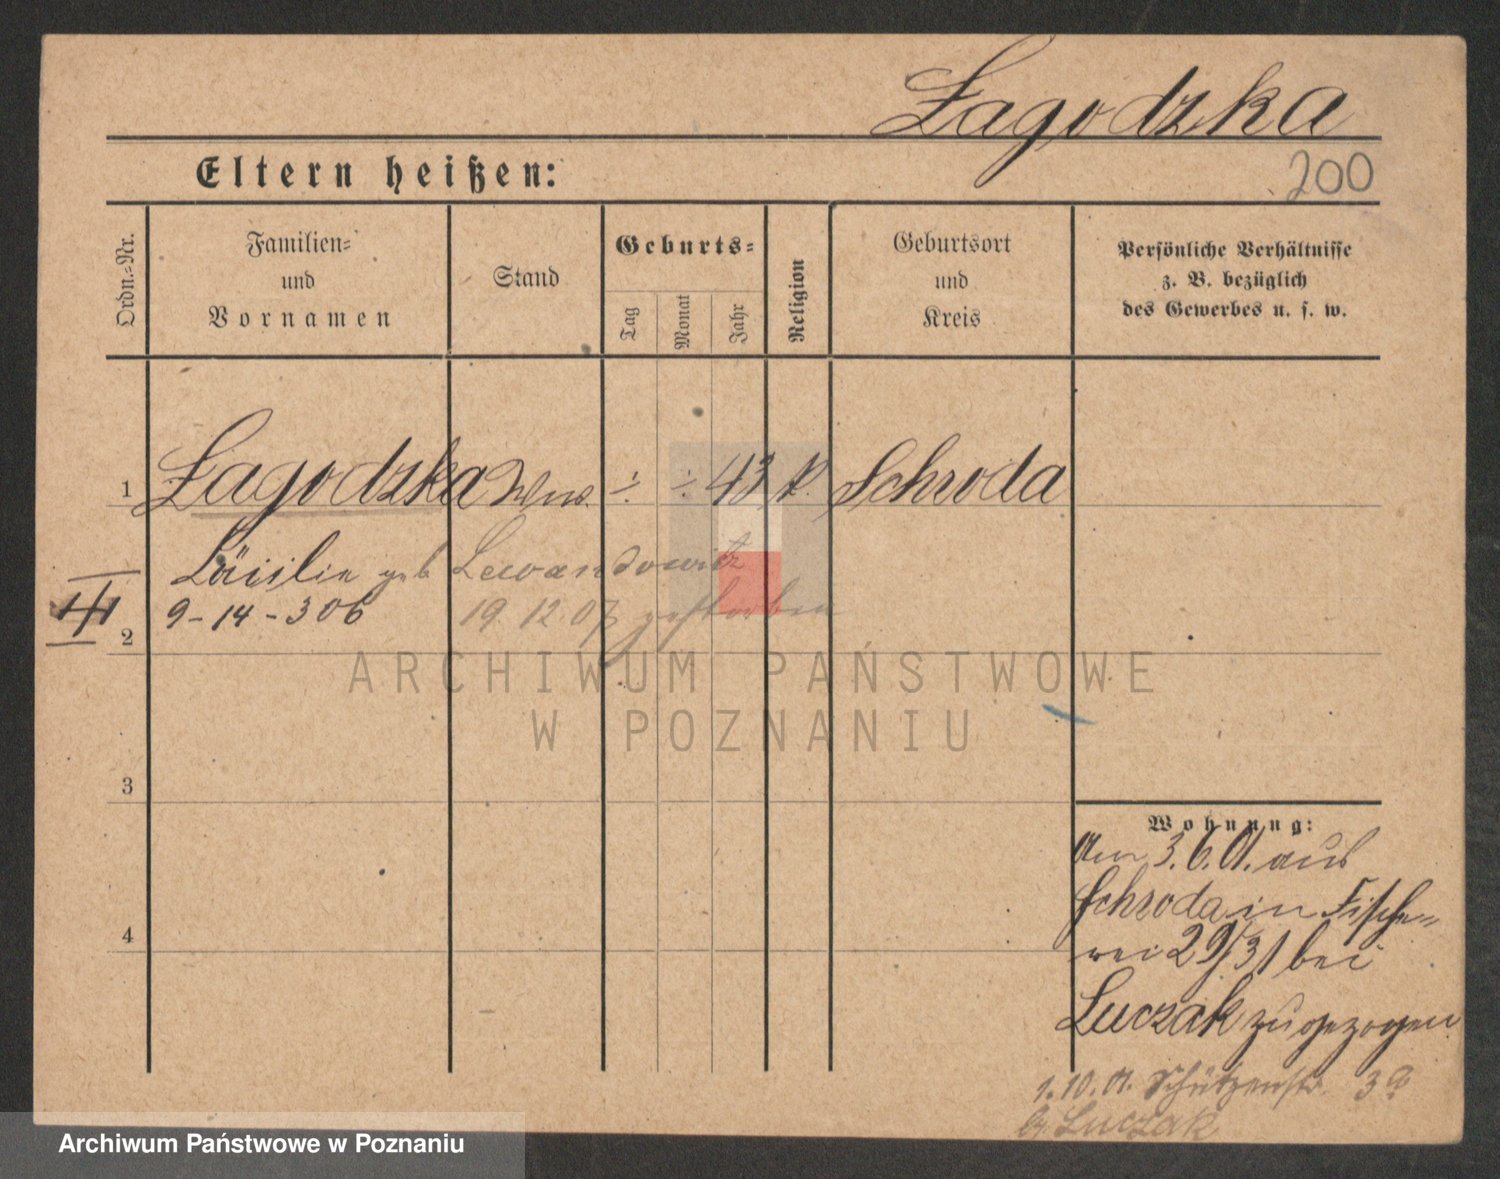 Łagodzka
Eltern heißen:
200
Ordn.=Nr.
Familien=
und
Vornamen
Stand
Geburts=
Tag
Monat
Jahr
Religion
Geburtsort
und
Kreis
Persönliche Verhältnisse
z. B. bezüglich
des Gewerbes u. s. w.
1 Łagodzka Wwe. ÷ ÷ 43 k. Schroda
Cäcilie geb Lewandowicz
9-14-306 19.12.07 gestorben
2
ARCHIWUM PAŃSTWOWE
W POZNANIU
3
Wohnung:
Am 3.6.01. aus
Schroda in Fische=
4
rei 29/31 bei
Luczak zugezogen
1.10.01. Schützenstr. 3a
b. Luczak
Archiwum Państwowe w Poznaniu